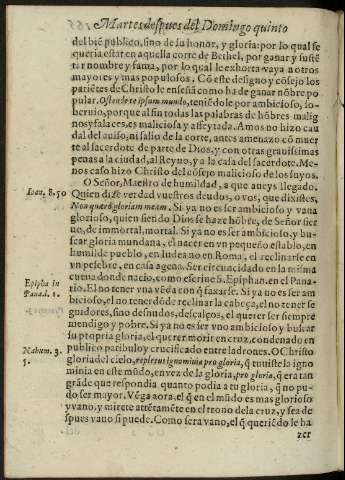 Martes despues del Domingo quinto
del biẽ publico, sino de su honor, y gloria: por lo qual se
queria estar en aquella corte de Bethel, por ganar y sustẽ
tar nombre y fama, por lo qual le exhorta vaya a otros
mayores y mas populosos. Cõ este designo y cõsejo los
pariẽtes de Christo le enseñã como ha de ganar nõbre po
pular. Ostende te ipsum mundo, teniẽdole por ambicioso, so-
beruio, porque al fin todas las palabras de hõbres malig
nos y falaces, es maliciosa y afeytada. Amos no hizo cau
dal del auiso, ni salio de la corte, antes amenazò cõ muer
te al sacerdote de parte de Dios, y con otras grauissimas
penas a la ciudad, al Reyno, y a la casa del sacerdote. Me-
nos caso hizo Christo del cõsejo malicioso de los suyos.
O Señor, Maestro de humildad, a que aueys llegado.
Ioan. 8. 50 Quien dize verdad vuestros deudos, o vos, que dixistes,
Non quæro gloriam meam. Si ya no es ser ambicioso y vana
glorioso, quien siendo Dios se haze hõbre, de Señor sier
uo, de immortal, mortal. Si ya no es ser ambicioso, y bu-
scar gloria mundana, el nacer en vn pequeño establo, en
humilde pueblo, en Iudea no en Roma, el reclinarse en
vn pesebre, en casa agena. Ser circuncidado en la misma
Epipha in cueua donde nacio, como escriue S. Epiphan. en el Pana-
Panad. 1. rio. El no tener vna vẽda con q̃ faxarse. Si ya no es ser am
bicioso, el no tener dõde reclinar la cabeça, el no tener se
guidores, sino desnudos, descalços, el querer ser siempre
mendigo y pobre. Si ya no es ser vno ambicioso y buscar
su propria gloria, el querer morir en cruz, condenado en
Nahum. 3. publico patibulo y crucificado entre ladrones. O Christo
5. gloria del cielo, repletus ignominia pro gloria, q̃ tuuiste la igno
minia en este mũdo, en vez de la gloria, pro gloria, q̃ era tan
grãde que respondia quanto podia a tu gloria, q̃ no pu-
do ser mayor. Vẽga aora, el q̃ en el mũdo es mas glorioso
y vano, y mirete attẽtamẽte en el trono de la cruz, y sea de
spues vano si puede. Como sera vano, el q̃ queriẽdole ha
zer